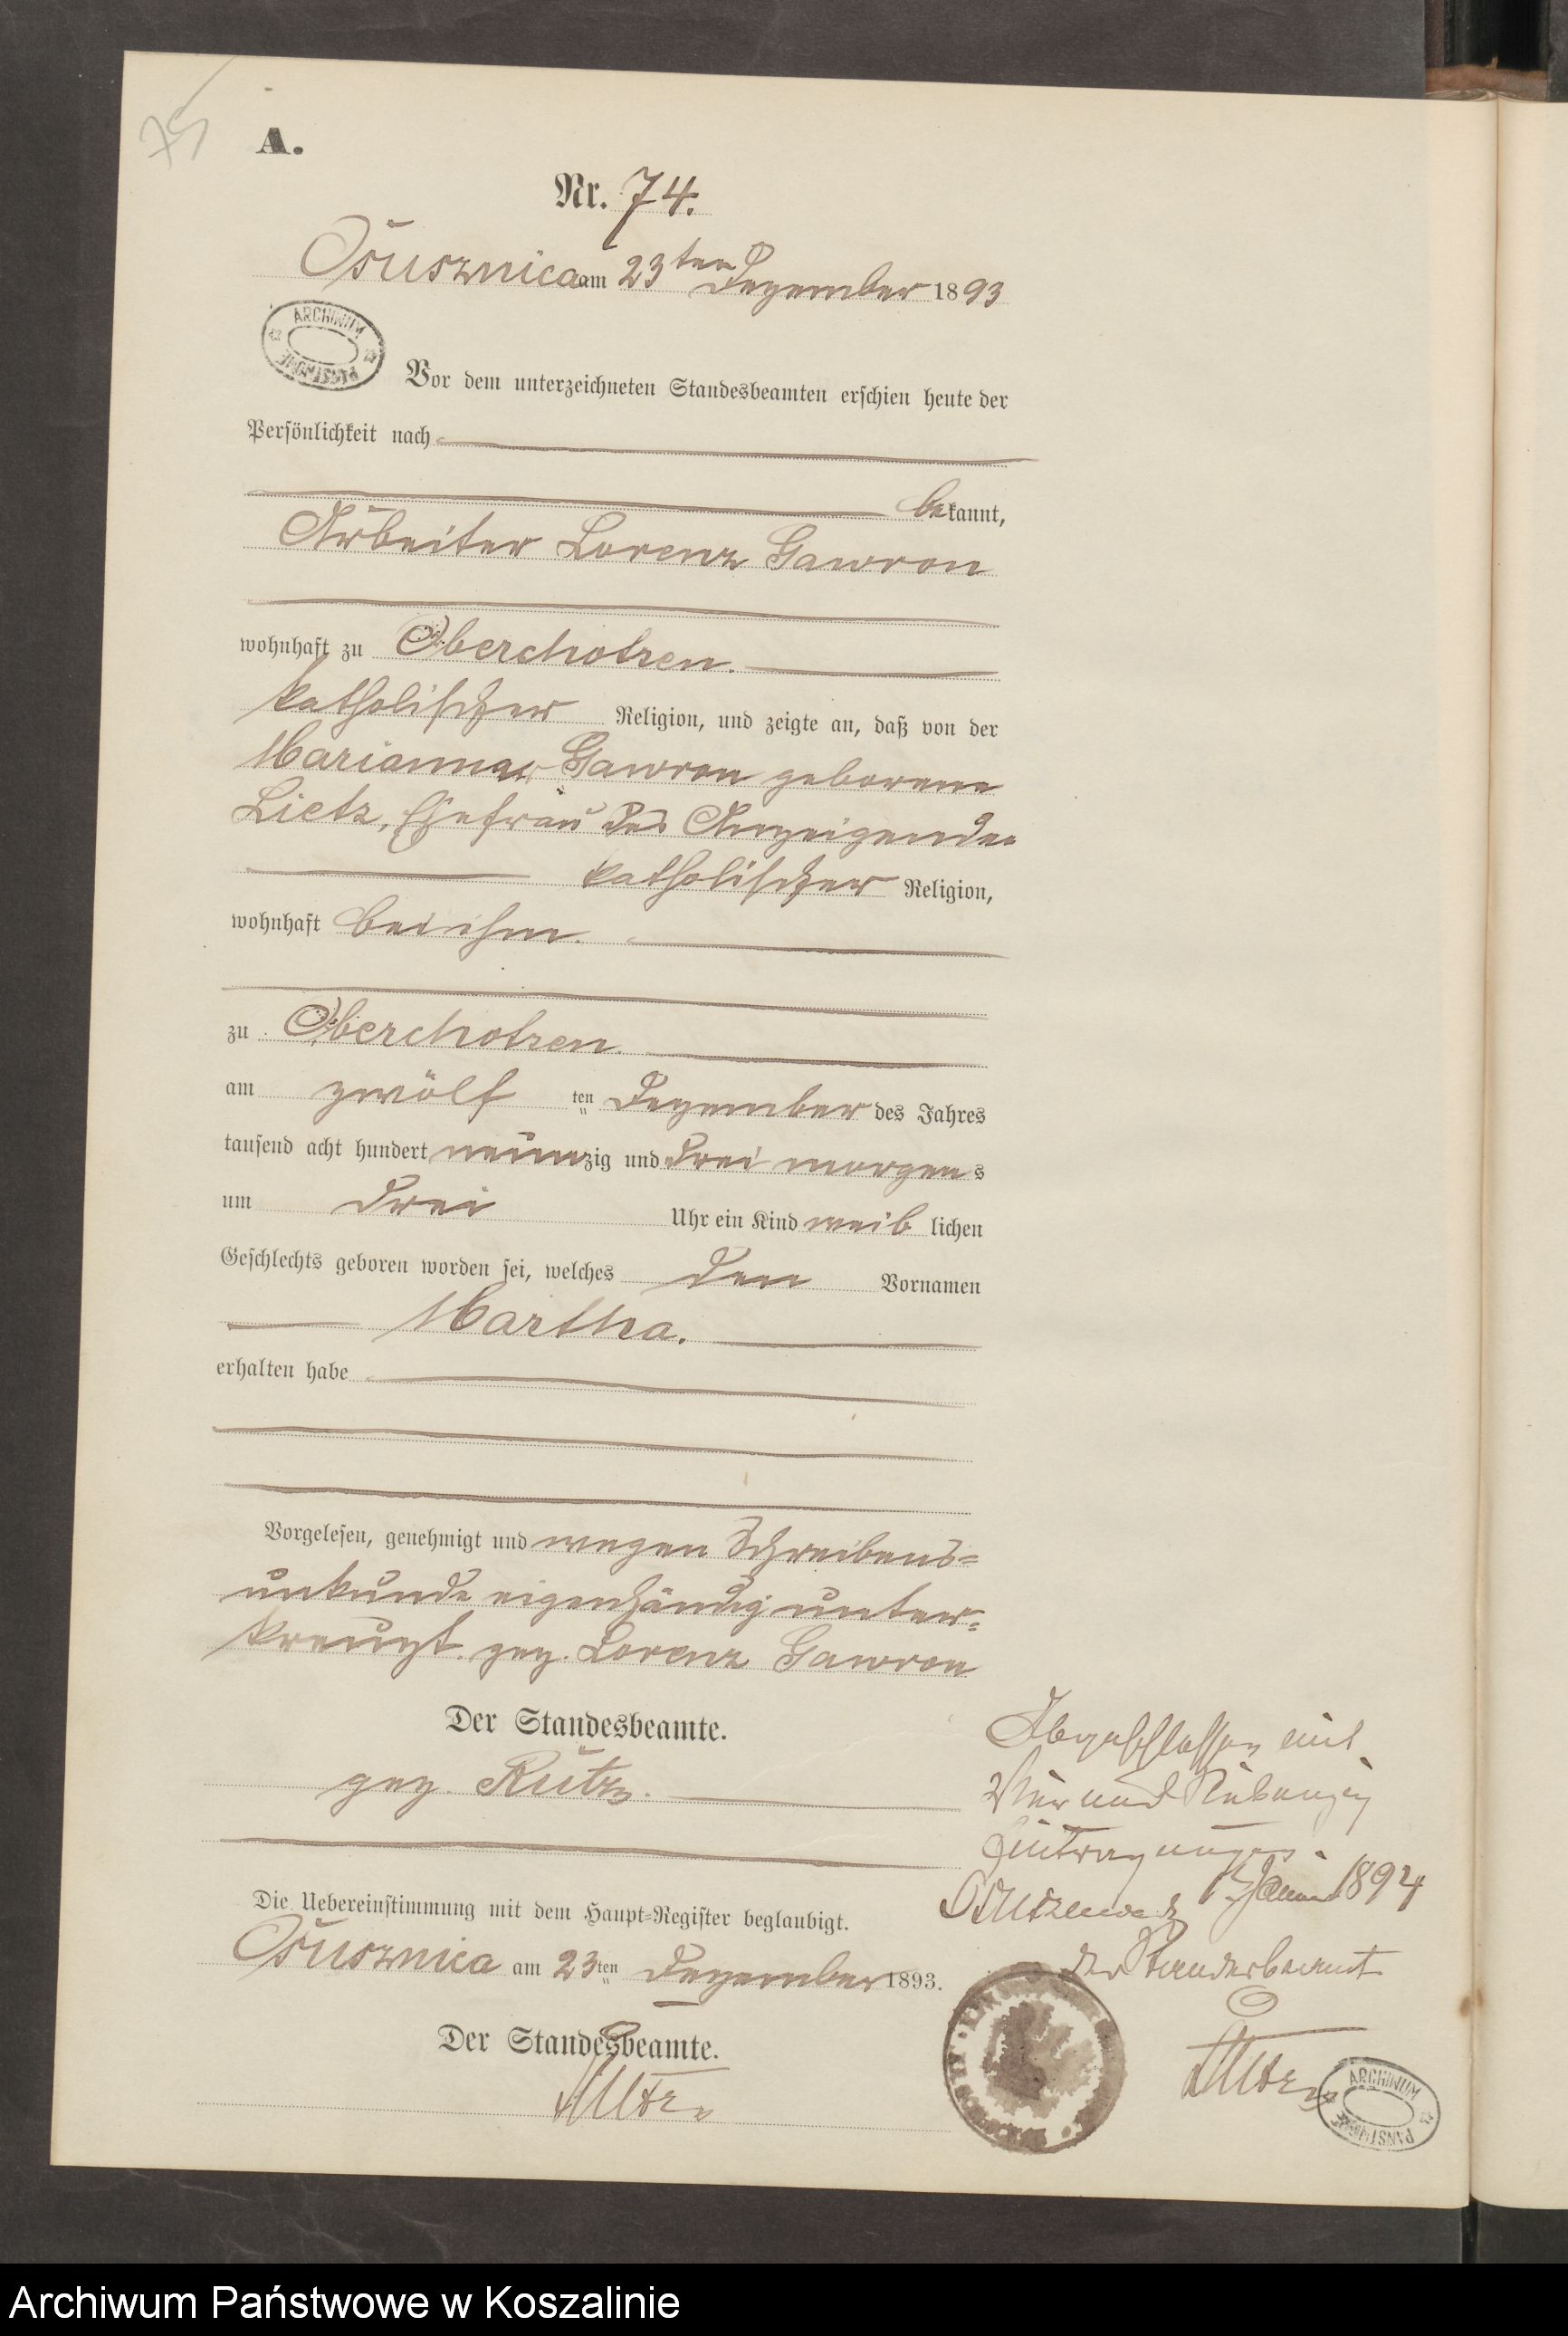 75
A.
Nr. 74.
Osusznica am 23ten Dezember 1893
ARCHIWUM PAŃSTWOWE
Vor dem unterzeichneten Standesbeamten erschien heute der
Persönlichkeit nach
bekannt,
Arbeiter Lorenz Gawron
wohnhaft zu Oberchotzen.
katholischer Religion, und zeigte an, daß von der
Marianna Gawron geborene
Lietz, Ehefrau des Anzeigenden
katholischer Religion,
wohnhaft bei ihm.
zu Oberchotzen.
am zwölf ten Dezember des Jahres
tausend acht hundert neunzig und drei morgens
um drei Uhr ein Kind weiblichen
Geschlechts geboren worden sei, welches den Vornamen
Martha.
erhalten habe
Vorgelesen, genehmigt und wegen Schreibens=
unkunde eigenhändig unter=
kreuzt. gez. Lorenz Gawron
Der Standesbeamte.
gez. Rutz.
Die Uebereinstimmung mit dem Haupt=Register beglaubigt.
Osusznica am 23ten Dezember 1893.
Der Standesbeamte.
Rutz
Abgeschlossen mit
Vier und Siebenzig
Eintragungen.
Osusznica 1 Januar 1894
der Standesbeamte
Rutz
ARCHIWUM PAŃSTWOWE
Archiwum Państwowe w Koszalinie